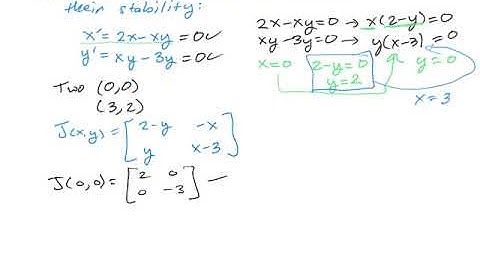 their stability:
x' = 2x-xy = 0 ✓
y' = xy-3y = 0 ✓
Two (0,0)
(3,2)
J(x,y) = [2-y -x
y x-3]
J(0,0) = [2 0
0 -3] —
2x-xy=0 → x(2-y)=0
xy-3y=0 → y(x-3)=0
x=0 2-y=0 y=0
y=2
x=3